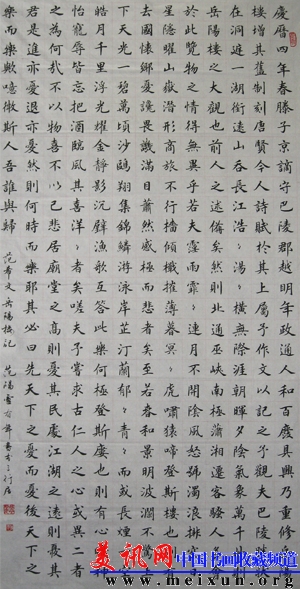 慶曆四年春滕子京謫守巴陵郡越明年政通人和百廢具興乃重修岳陽
樓增其舊制刻唐賢今人詩賦於其上屬予作文以記之予觀夫巴陵勝狀
在洞庭一湖銜遠山吞長江浩〻湯〻橫無際涯朝暉夕陰氣象萬千此則
岳陽樓之大觀也前人之述備矣然則北通巫峽南極瀟湘遷客騷人多會
於此覽物之情得無異乎若夫霪雨霏〻連月不開陰風怒號濁浪排空日
星隱曜山嶽潛形商旅不行檣傾楫摧薄暮冥〻虎嘯猿啼登斯樓也則有
去國懷鄉憂讒畏譏滿目蕭然感極而悲者矣至若春和景明波瀾不驚上
下天光一碧萬頃沙鷗翔集錦鱗游泳岸芷汀蘭郁〻青〻而或長煙一空
皓月千里浮光耀金靜影沉璧漁歌互答此樂何極登斯樓也則有心曠神
怡寵辱皆忘把酒臨風其喜洋〻者矣嗟夫予嘗求古仁人之心或異二者
之為何哉不以物喜不以己悲居廟堂之高則憂其民處江湖之遠則憂其
君是進亦憂退亦憂然則何時而樂耶其必曰先天下之憂而憂後天下之
樂而樂歟噫微斯人吾誰與歸
范希文岳陽樓記
美讯网
中国书画收藏频道
www.meixun.org